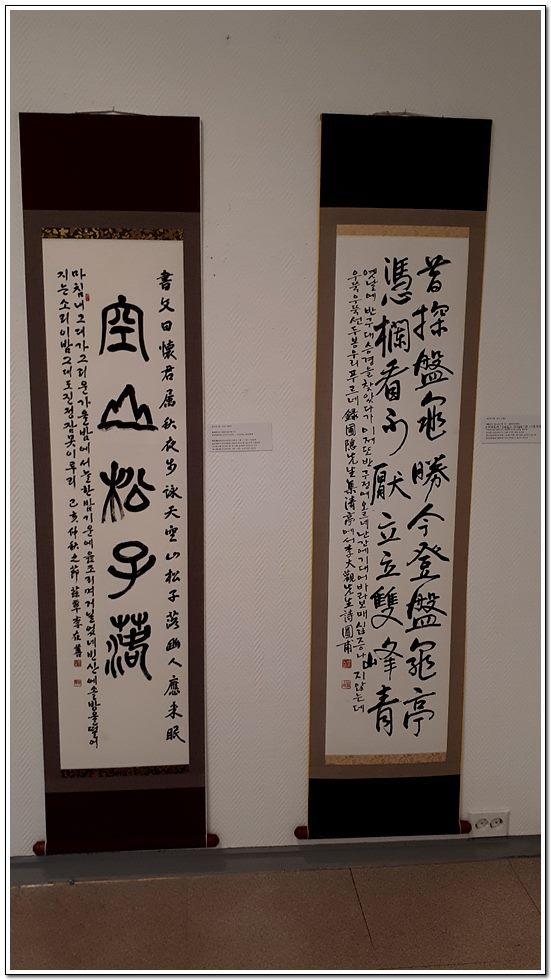 書文曰懷君屬秋夜步詠天空山松子落幽人應未眠
空山松子落
마침내 그대가 그리운 가을밤에 서늘한 밤기운에 읊조리며 거닐었네 빈산에 솔방울 떨어
지는 소리 이밤 그대도 진정 잠 못이루리 己亥仲秋之節 李在
昔探盤龜勝今登盤龜亭
憑欄看不厭立立雙峰青
옛날에 반구대 승경을 찾았다가 이저또 반구정에 오르네 난간에 기대어 바라보매 싫증나 지않는데
우뚝우뚝 선 두 봉우리 푸르네 錄 先生集淸亭에서 李天觀先生詩